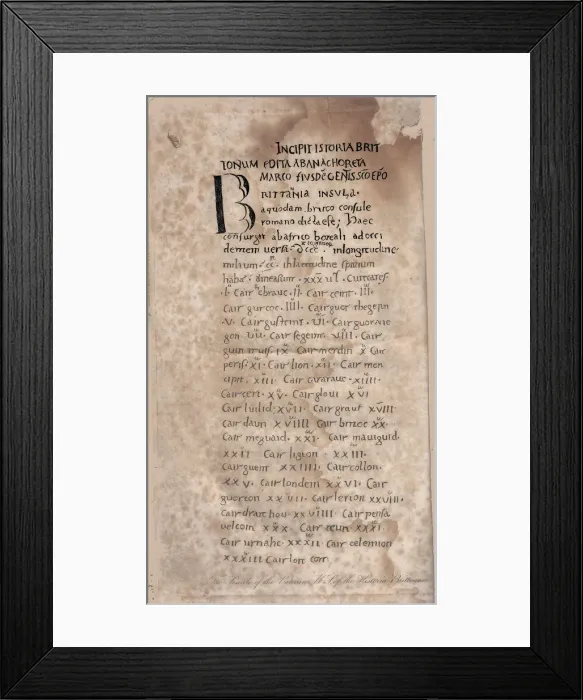 INCIPIT ISTORIA BRIT
TONUM EDITA AB ANACHORETA
MARCO
BRITTANIA INSULA.
a quodam bruto consule
romano dicta est; Haec
consurgit ab africo boreali ad occi
dentem versu. dccc. in longitudine
milium. cc. in latitudine spatium
habet
.I. Cair ebrauc .II. Cair ceint .III.
Cair gurcoc .IIII. Cair guorthegern
.V. Cair gusteint .VI. Cair guorane
gon .VII. Cair segeint .VIII. Cair
guin truis .IX. Cair merdin .X. Cair
peris .XI. Cair lion .XII. Cair men
cipit .XIII. Cair caratauc .XIIII.
Cair ceri .XV. Cair gloui .XVI
Cair luilid .XVII. Cair graut XVIII
Cair daun XVIIII Cair britoc XX.
Cair meguaid. XXI. Cair mauiguid.
XXII Cair ligion XXIII.
Cair guent XXIIII. Cair collon.
XXV. Cair londein XXVI. Cair
guorcon XXVII. Cair lerion XXVIII.
Cair draithou. XXVIIII. Cair pensa
uelcoin XXX. Cair teun. XXXI.
Cair urnahc. XXXII. Cair celemion
XXXIII Cair loit coit
of the Vatican of the Historia Brittonum